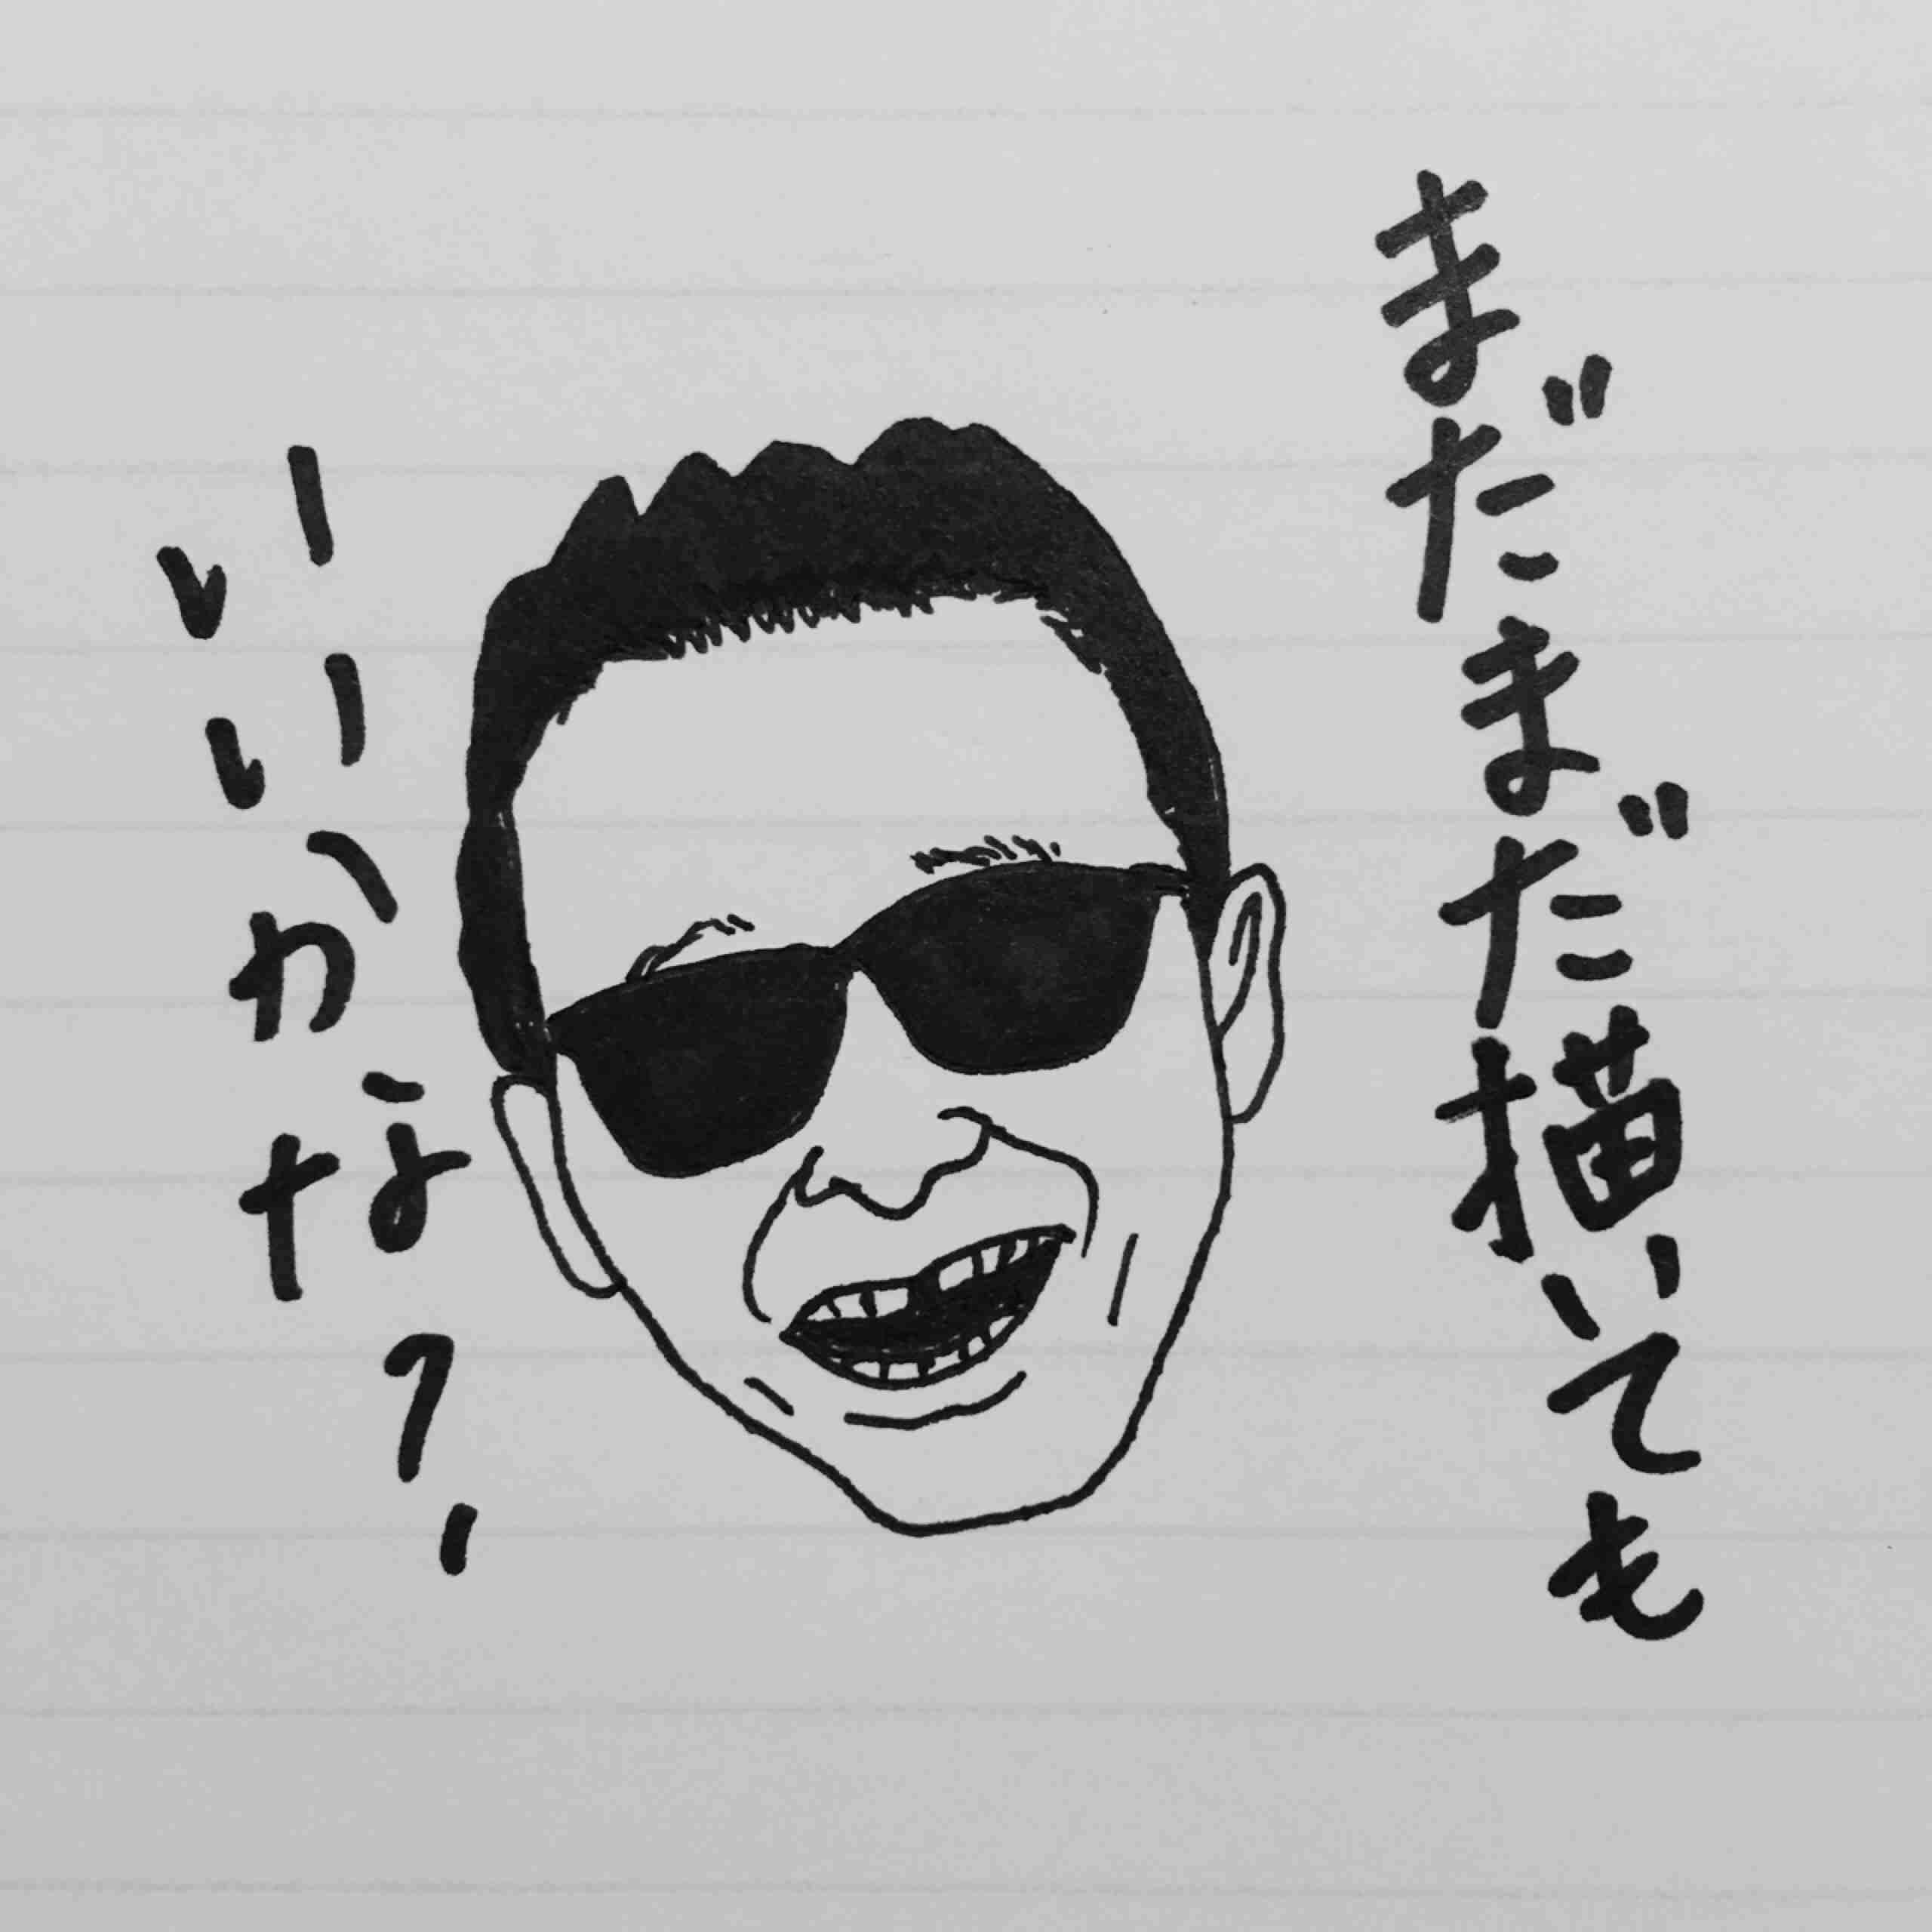 まだまだ描いても
いいかな?